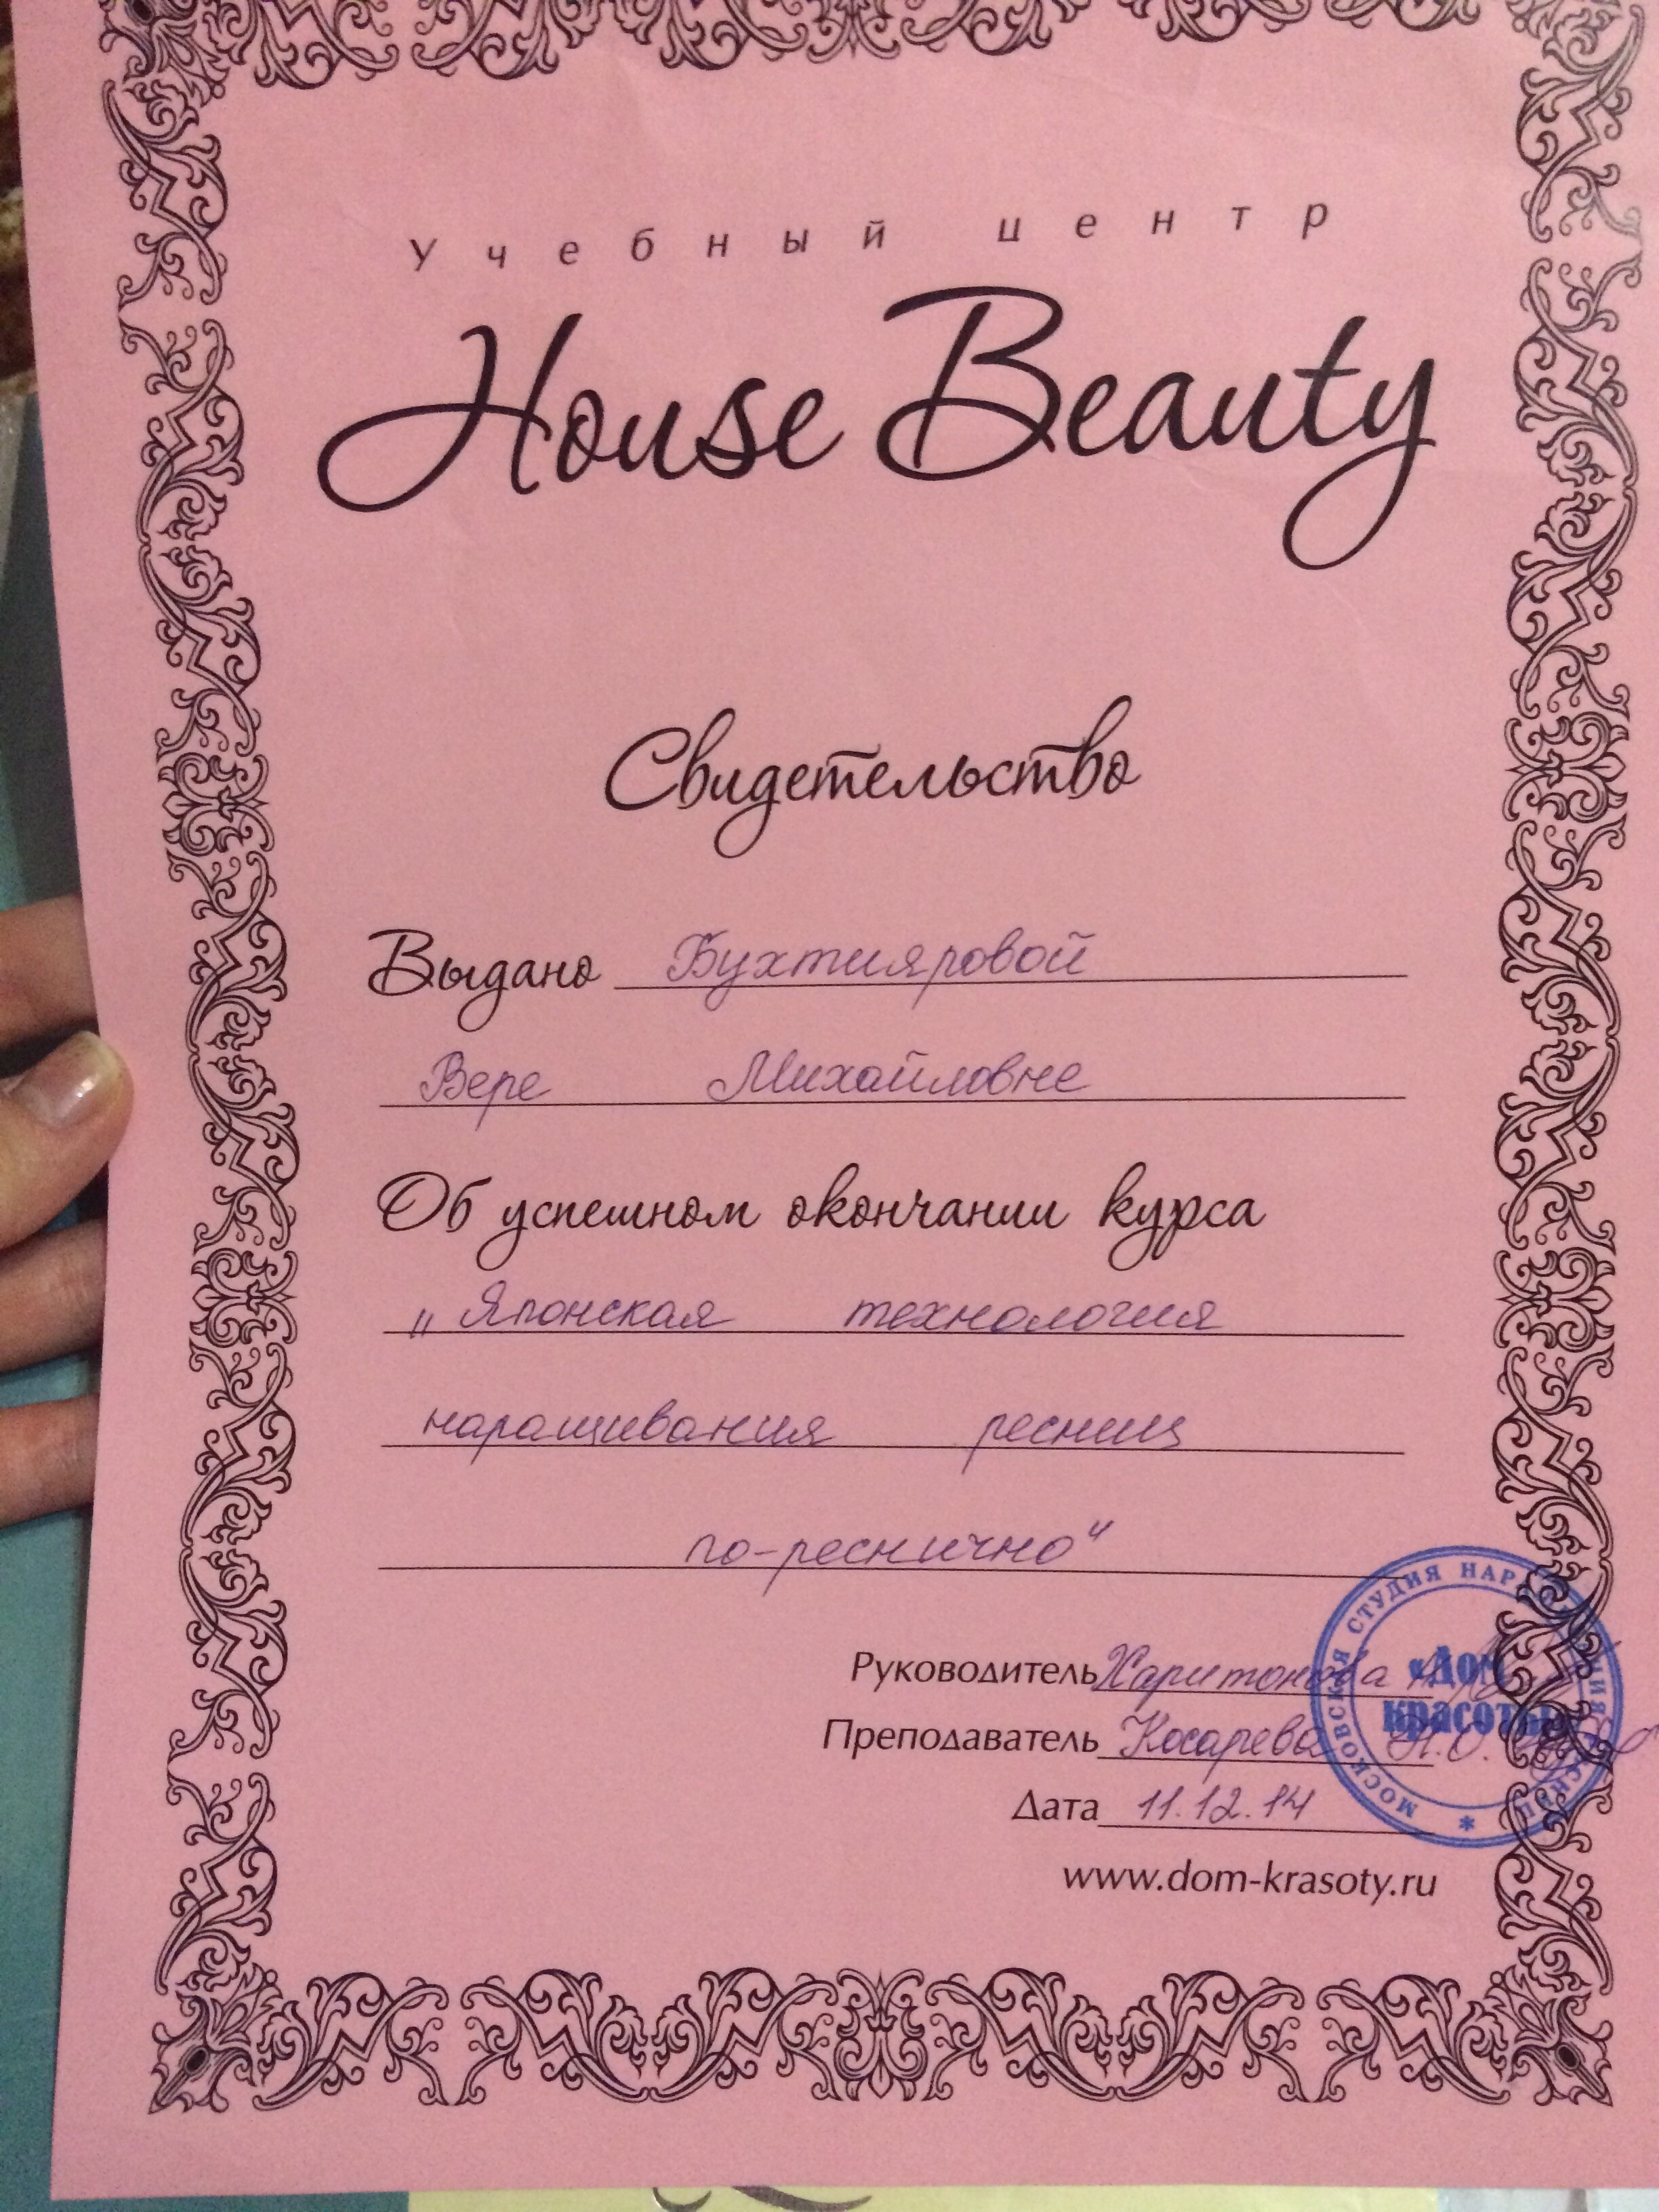 Учебный центр
House Beauty
Свидетельство
Выдано Бухтияровой
Вере Михайловне
Об успешном окончании курса
„Японская технология
наращивания ресниц
по-реснично“
Руководитель Харитонова
Преподаватель Косарева Н.О.
Дата 11.12.14
www.dom-krasoty.ru
МОСКОВСКАЯ СТУДИЯ
«Дом
красоты»